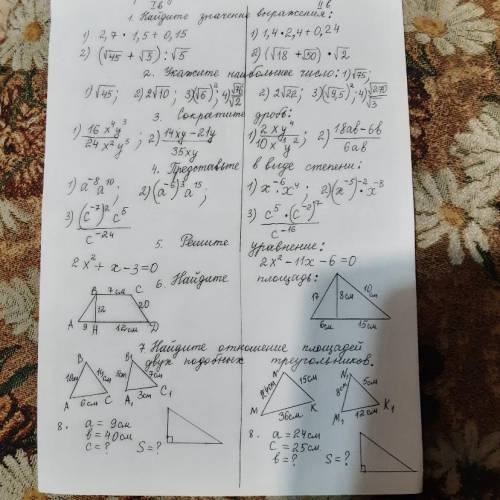 I в II в
1. Найдите значение выражения:
1) 2,7 · 1,5 + 0,15 1) 1,4 · 2,4 + 0,24
2) (√45 + √5) : √5 2) (√18 + √50) · √2
2. Укажите наибольшее число: 1) √75;
1) √45; 2) 2√10; 3) (√6)²; 4) √76/√2 2) 2√22; 3) (√9,5)²; 4) √270/√3
3. Сократите дробь:
1) 16x⁴y³/24x²y⁵; 2) (14xy − 21y)/35xy 1) 2xy⁴/10x³y²; 2) (18ab − 6b)/6ab
4. Представьте в виде степени:
1) a⁻⁸a¹⁰; 2) (a⁻⁶)³a¹⁵; 1) x⁻⁶ · x⁴; 2) (x⁻⁵)⁻² · x⁻³
3) (c⁻⁷)²c⁵/c⁻²⁴ 3) c⁵ · (c⁻²)⁷/c⁻¹⁶
5. Решите уравнение:
2x² + x − 3 = 0 2x² − 11x − 6 = 0
6. Найдите площадь:
B 7см C
12 20
A 9 H 12см D
17 8см 10см
6см 15см
7. Найдите отношение площадей
двух подобных треугольников.
B 14см A 6см C
B₁ 7см A₁ 3см C₁
N 24см 15см M 36см K
N₁ 8см 5см M₁ 12см K₁
8. a = 9см 8. a = 24см
b = 40см c = 25см
c = ? S = ? b = ? S = ?